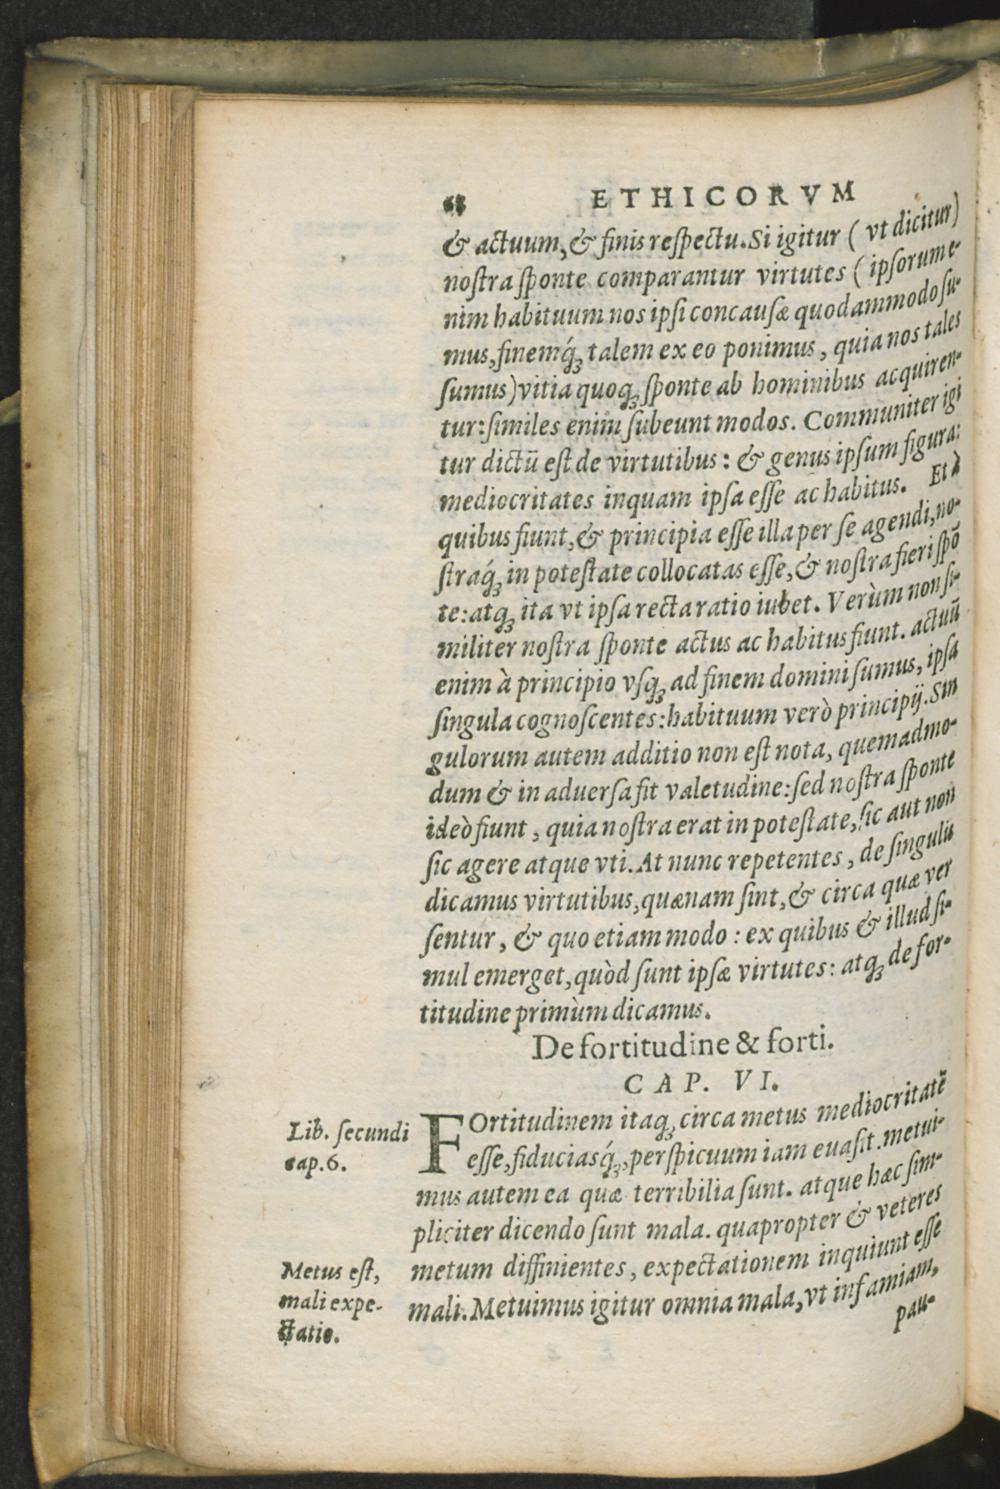 68 ETHICORVM
& actuum, & finis reſpectu. Si igitur ( vt dicitur)
noſtra ſponte comparantur virtutes ( ipſorum e-
nim habituum nos ipſi concauſæ quodammodo ſu-
mus, finemq́ꝫ talem ex eo ponimus, quia nos tales
ſumus) vitia quoqꝫ ſponte ab hominibus acquiren-
tur: ſimiles enim ſubeunt modos. Communiter igi
tur dictũ eſt de virtutibus: & genus ipſum figura:
mediocritates inquam ipſa eſſe ac habitus. Et à
quibus fiunt, & principia eſſe illa per ſe agendi, no-
ſtraq́ꝫ in poteſtate collocatas eſſe, & noſtra fieri ſpõ
te: atqꝫ ita vt ipſa recta ratio iubet. Verùm non ſi-
militer noſtra ſponte actus ac habitus fiunt. actuũ
enim à principio vſqꝫ ad finem domini ſumus, ipſa
ſingula cognoſcentes: habituum verò principij. Sin
gulorum autem additio non eſt nota, quemadmo-
dum & in aduerſa fit valetudine: ſed noſtra ſponte
ideò fiunt, quia noſtra erat in poteſtate, ſic aut non
ſic agere atque vti. At nunc repetentes, de ſingulis
dicamus virtutibus, quænam ſint, & circa quæ ver
ſentur, & quo etiam modo: ex quibus & illud ſi-
mul emerget, quòd ſunt ipſæ virtutes: atqꝫ de for-
titudine primùm dicamus.
De fortitudine & forti.
CAP. VI.
Lib. ſecundi
cap. 6.
FOrtitudinem itaqꝫ circa metus mediocritatẽ
eſſe, fiduciasq́ꝫ, perſpicuum iam euaſit. metui-
mus autem ea quæ terribilia ſunt. atque hæc ſim-
pliciter dicendo ſunt mala. quapropter & veteres
metum diffinientes, expectationem inquiunt eſſe
mali. Metuimus igitur omnia mala, vt infamiam,
Metus eſt,
mali expe-
ctatio.
pau-